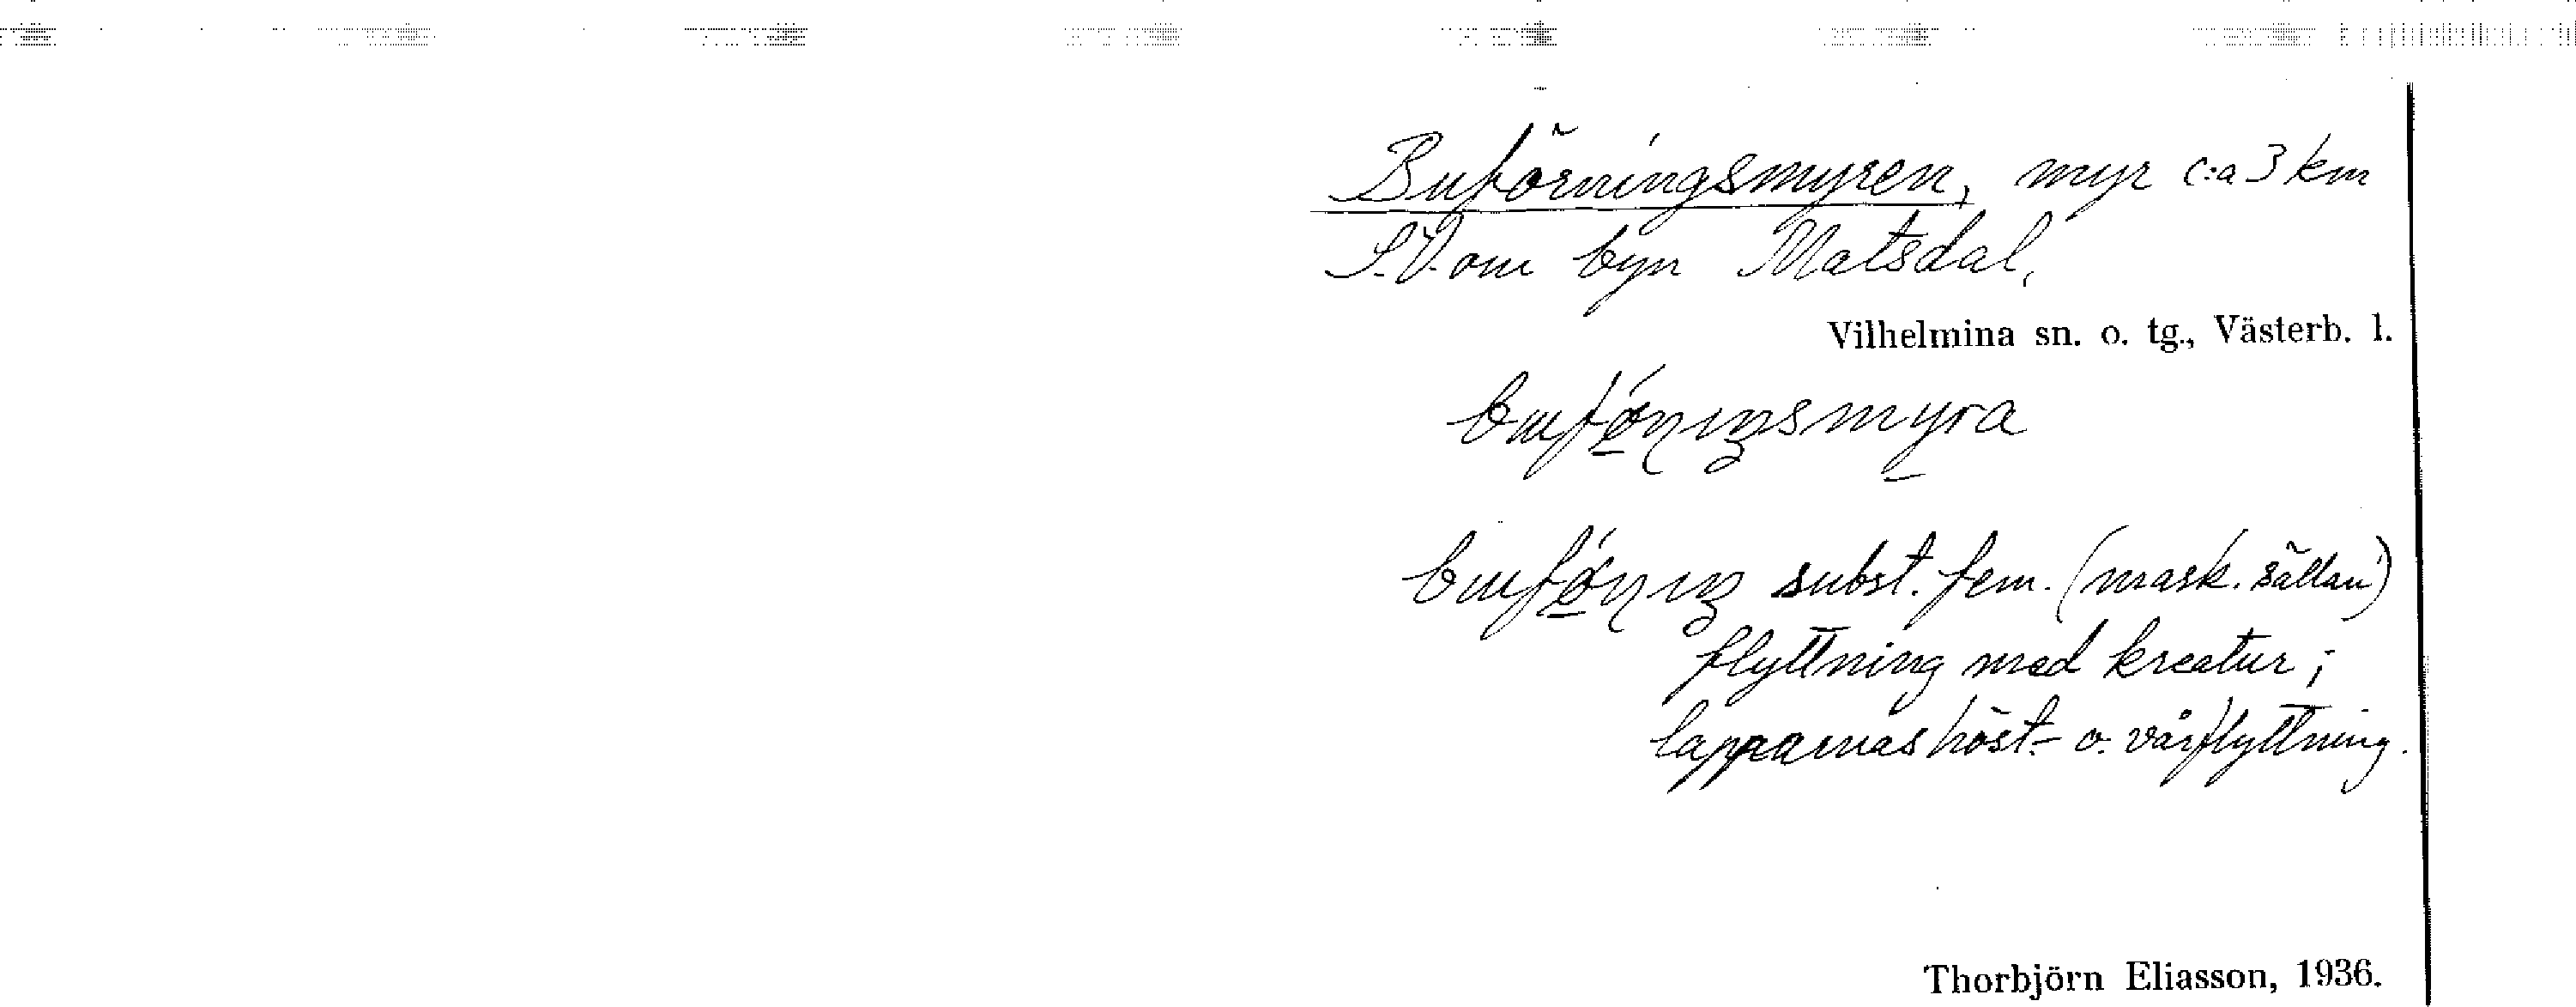 Buförningsmyren, myr c:a 3 km
S.V. om byn Matsdal,
Vilhelmina sn. o. tg., Västerb. l.
subst. fem. (mask. sällan)
flyttning med kreatur;
lapparnas höst- o. vårflyttning.
Thorbjörn Eliasson, 1936.